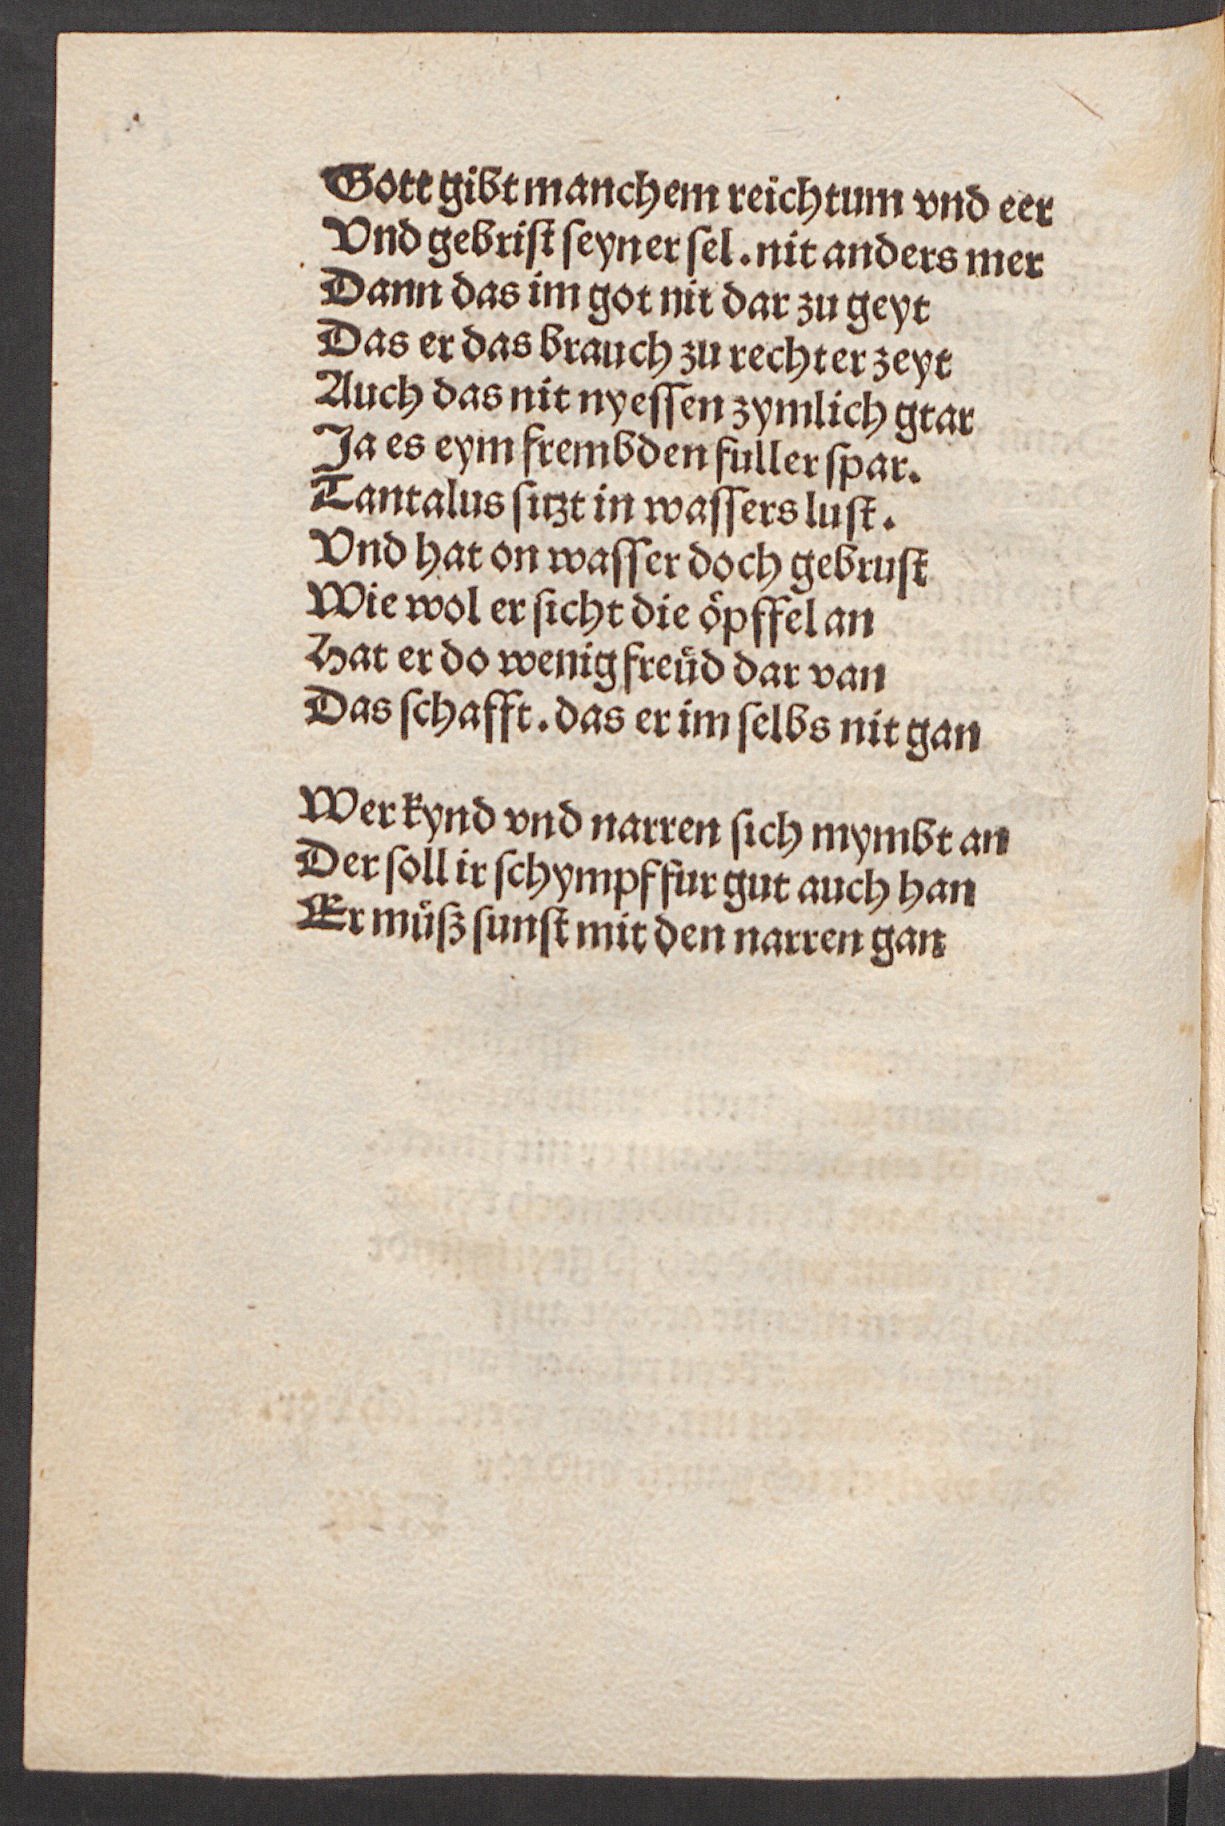 Gott gibt manchem reichtum vnd eer
Vnd gebrist seyner sel. nit anders mer
Dann das im got nit dar zu geyt
Das er das brauch zu rechter zeyt
Auch das nit nyessen zymlich gtar
Ja es eym frembden fuller spar.
Tantalus sitzt in wassers lust.
Vnd hat on wasser doch gebrust
Wie wol er sicht die öpffel an
Hat er do wenig freüd dar van
Das schafft. das er im selbs nit gan
Wer kynd vnd narren sich mymbt an
Der soll ir schympf fur gut auch han
Er müß sunst mit den narren gan